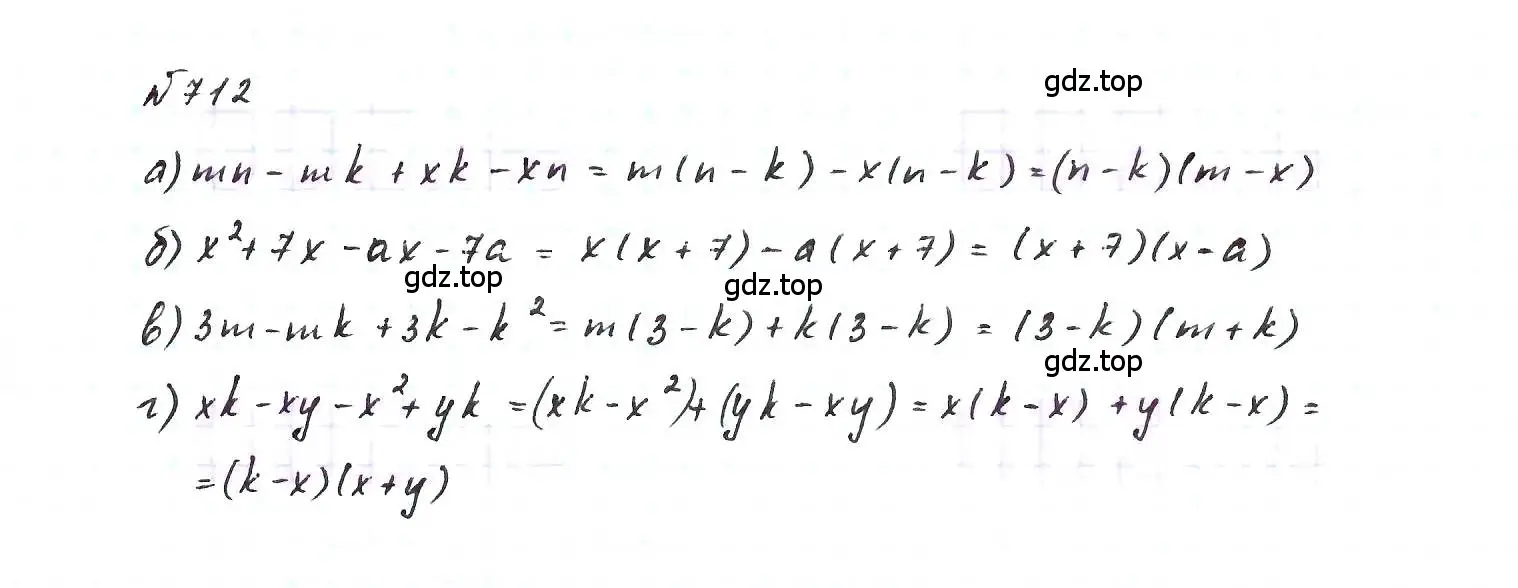 № 712
gdz.top
а) mn - mk + xk - xn = m(n - k) - x(n - k) = (n - k)(m - x)
б) x² + 7x - ax - 7a = x(x + 7) - a(x + 7) = (x + 7)(x - a)
gdz.top
gdz.top
в) 3m - mk + 3k - k² = m(3 - k) + k(3 - k) = (3 - k)(m + k)
gdz.top
г) xk - xy - x² + yk = (xk - x²) + (yk - xy) = x(k - x) + y(k - x) =
= (k - x)(x + y)